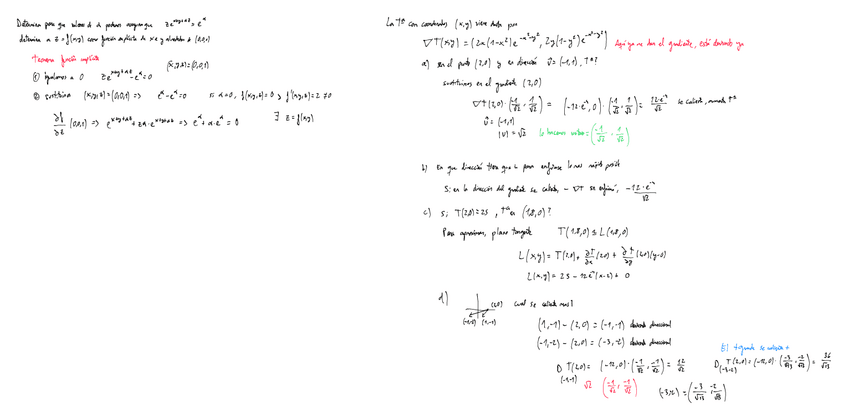 Determina para que valores de α podemos asegurar que z e^{x+y+αz} = e^α
determina a z = f(x,y) como función implícita de x e y alrededor de (0,0,1)
Teorema función implícita
(x,y,z) = (0,0,1)
① igualamos a 0 z e^{x+y+αz} - e^α = 0
② sustituimos (x,y,z) = (0,0,1) => e^α - e^α = 0
∂f/∂z (0,0,1) => e^{x+y+αz} + zα · e^{x+y+αz} => e^α + α · e^α = 0
∃ z = f(x,y)
La Tª con coordenadas (x,y) viene dada por
∇T(x,y) = (2x(1-x²)e^{-x²-y²}, 2y(1-y²)e^{-x²-y²}) Aquí ya me dan el gradiente, está derivado ya
a) en el punto (2,0) y en dirección v̄ = (-1,1), Tª?
sustituimos en el gradiente (2,0)
∇T(2,0) · (-1/√2, 1/√2) = (-12·e^{-4}, 0) · (-1/√2, 1/√2) = 12·e^{-4}/√2 se calienta, aumenta Tª
v̄ = (-1,1)
|v| = √2 lo hacemos unitario = (-1/√2, 1/√2)
b) En que dirección tiene que ir para enfriarse lo más rápido posible
Si en la dirección del gradiente se calienta, -∇T se enfría, -12·e^{-4}/√2
c) si T(2,0) = 25, Tª en (1.8,0)?
Para aproximar, plano tangente T(1.8,0) ≈ L(1.8,0)
L(x,y) = T(2,0) + ∂T/∂x (2,0) + ∂T/∂y (2,0)(y-0)
L(x,y) = 25 - 12e^{-4}(x-2) + 0
d) (2,0) Cual se calienta más?
(1,-1) - (2,0) = (-1,-1) derivada direccional
(-1,-2) - (2,0) = (-3,-2) derivada direccional
El segundo se calienta +
D T(2,0) = (-12,0) · (-1/√2, -1/√2) = 12/√2
(-1,-1)
√2 (-1/√2, -1/√2)
D_{(-3,-2)} T(2,0) = (-12,0) · (-3/√13, -2/√13) = 36/√13
(-3,-2) = (-3/√13, -2/√13)